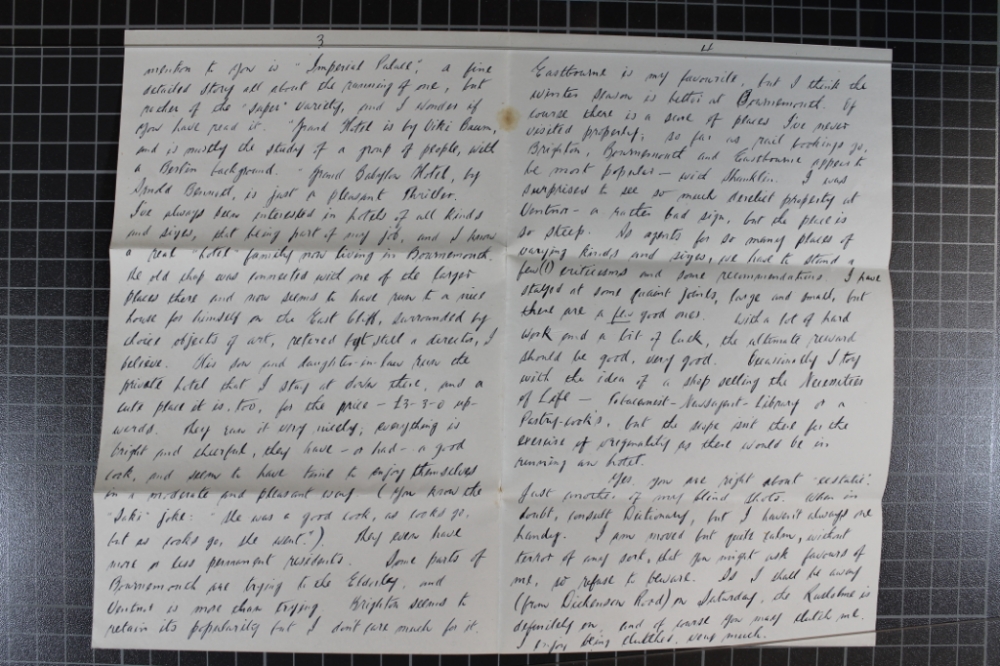 3
mention to you is "Imperial Palace", a fine
detailed story all about the running of one, but
rather of the "super" variety, and I wonder if
you have read it. "Grand Hotel is by Vicki Baum,
and is mostly the study of a group of people, with
a Berlin background. "Grand Babylon Hotel, by
Arnold Bennett, is just a pleasant Thriller.
I've always been interested in hotels of all kinds
and sizes, that being part of my job, and I know
a real "hotel" family now living in Bournemouth.
The old chap was connected with one of the larger
places there and now seems to have run to a nice
house for himself on the East Cliff, surrounded by
choice objects of art, retired but still a director, I
believe. His son and daughter-in-law run the
private hotel that I stay at down there, and a
cute place it is, too, for the price - £3-3-0 up-
wards. They run it very nicely; everything is
bright and cheerful, they have - or had - a good
cook, and seem to have time to enjoy themselves
in a moderate and pleasant way (You know the
"Saki" joke: "She was a good cook, as cooks go,
but as cooks go, she went.") They even have
more or less permanent residents. Some parts of
Bournemouth are trying to the Elderley, and
Ventnor is more than trying. Brighton seems to
retain its popularity but I don't care much for it.
4
Eastbourne is my favourite, but I think the
winter season is better at Bournemouth. Of
course there is a score of places I've never
visited properly; so far as rail bookings go,
Brighton, Bournemouth and Eastbourne appear to
be most popular - with Shanklin. I was
surprised to see so much derelict property at
Ventnor - a rather bad sign, but the place is
so steep. As agents for so many places of
varying kinds and sizes, we had to stand a
few(!) criticisms and some recommendations. I have
stayed at some quaint joints, large and small, but
there are a few good ones. With a lot of hard
work and a bit of luck, the ultimate reward
should be good, very good. Occasionally I toy
with the idea of a shop selling the Necessities
of Life - Tobacconist-Newsagent-Library or a
Pastry-cook's, but the scope isn't there for the
exercise of originality as there would be in
running an hotel.
Yes, you are right about "ecstatic".
Just another of my blind spots. When in
doubt, consult Dictionary, but I haven't always one
handy. I am moved but quite calm, without
terror of any sort, that you might ask favours of
me, so refuse to beware. As I shall be away
(from Dickenson Road) on Saturday, the is
definitely on, and of course you may clutch me.
I enjoy being clutched, very much.